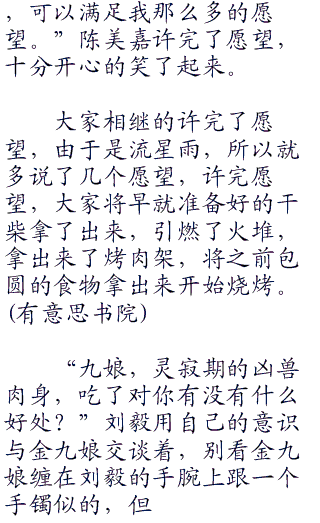 ，可以满足我那么多的愿
望。”陈美嘉许完了愿望，
十分开心的笑了起来。
大家相继的许完了愿
望，由于是流星雨，所以就
多说了几个愿望，许完愿
望，大家将早就准备好的干
柴拿了出来，引燃了火堆，
拿出来了烤肉架，将之前包
圆的食物拿出来开始烧烤。
(有意思书院)
“九娘，灵寂期的凶兽
肉身，吃了对你有没有什么
好处？”刘毅用自己的意识
与金九娘交谈着，别看金九
娘缠在刘毅的手腕上跟一个
手镯似的，但